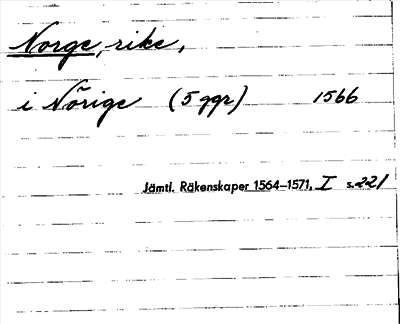 Norge, rike,
i Nõrige (5 ggr) 1566
Jämtl. Räkenskaper 1564–1571, I s.221